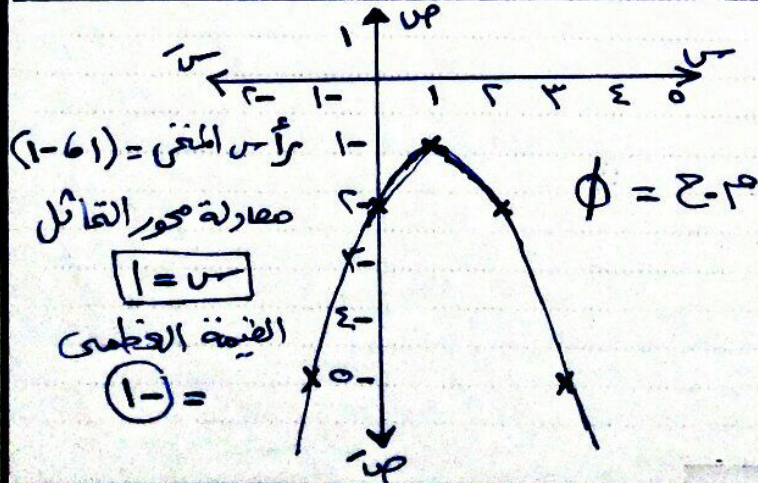 ص
١
س
سَ
-٢ -١ ١ ٢ ٣ ٤ ٥
-١
رأس المنحنى = (١، -١)
م.ح = ∅
-٢
معادلة محور التماثل
-
س = ١
-٤
القيمة العظمى
= -١
-٥
صَ